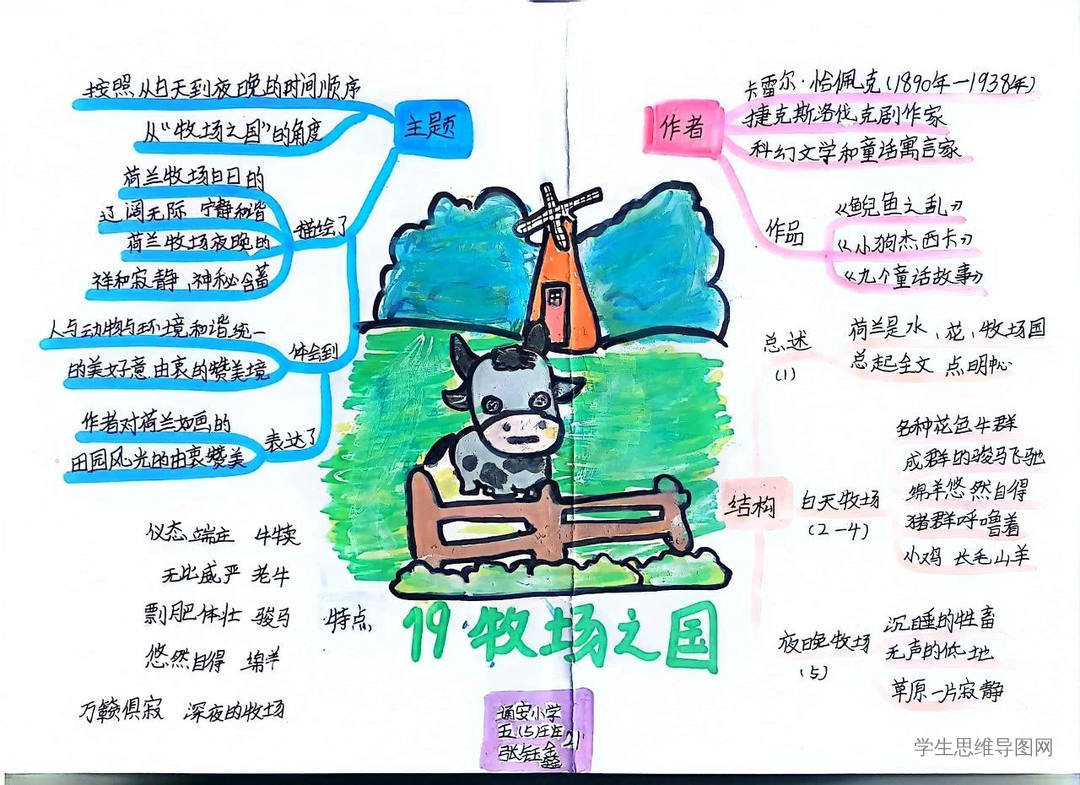 主题
按照从白天到夜晚的时间顺序
从“牧场之国”的角度
描绘了
荷兰牧场白日的
辽阔无际 宁静和谐
荷兰牧场夜晚的
祥和寂静、神秘含蓄
体会到
人与动物与环境和谐统一
的美好意由衷的赞美境
表达了
作者对荷兰如画的
田园风光的由衷赞美
特点
仪态端庄 牛犊
无比威严 老牛
剽肥体壮 骏马
悠然自得 绵羊
万籁俱寂 深夜的牧场
19·牧场之国
埇安小学
张钰鑫
21
作者
卡雷尔·恰佩克(1890年—1938年)
捷克斯洛伐克剧作家
科幻文学和童话寓言家
作品
《鲵鱼之乱》
《小狗杰西卡》
《九个童话故事》
结构
总述
(1)
荷兰是水、花、牧场国
总起全文 点明中心
白天牧场
(2-4)
各种花色牛群
成群的骏马飞驰
绵羊悠然自得
猪群呼噜着
小鸡 长毛山羊
夜晚牧场
(5)
沉睡的牲畜
无声的低地
草原一片寂静
学生思维导图网